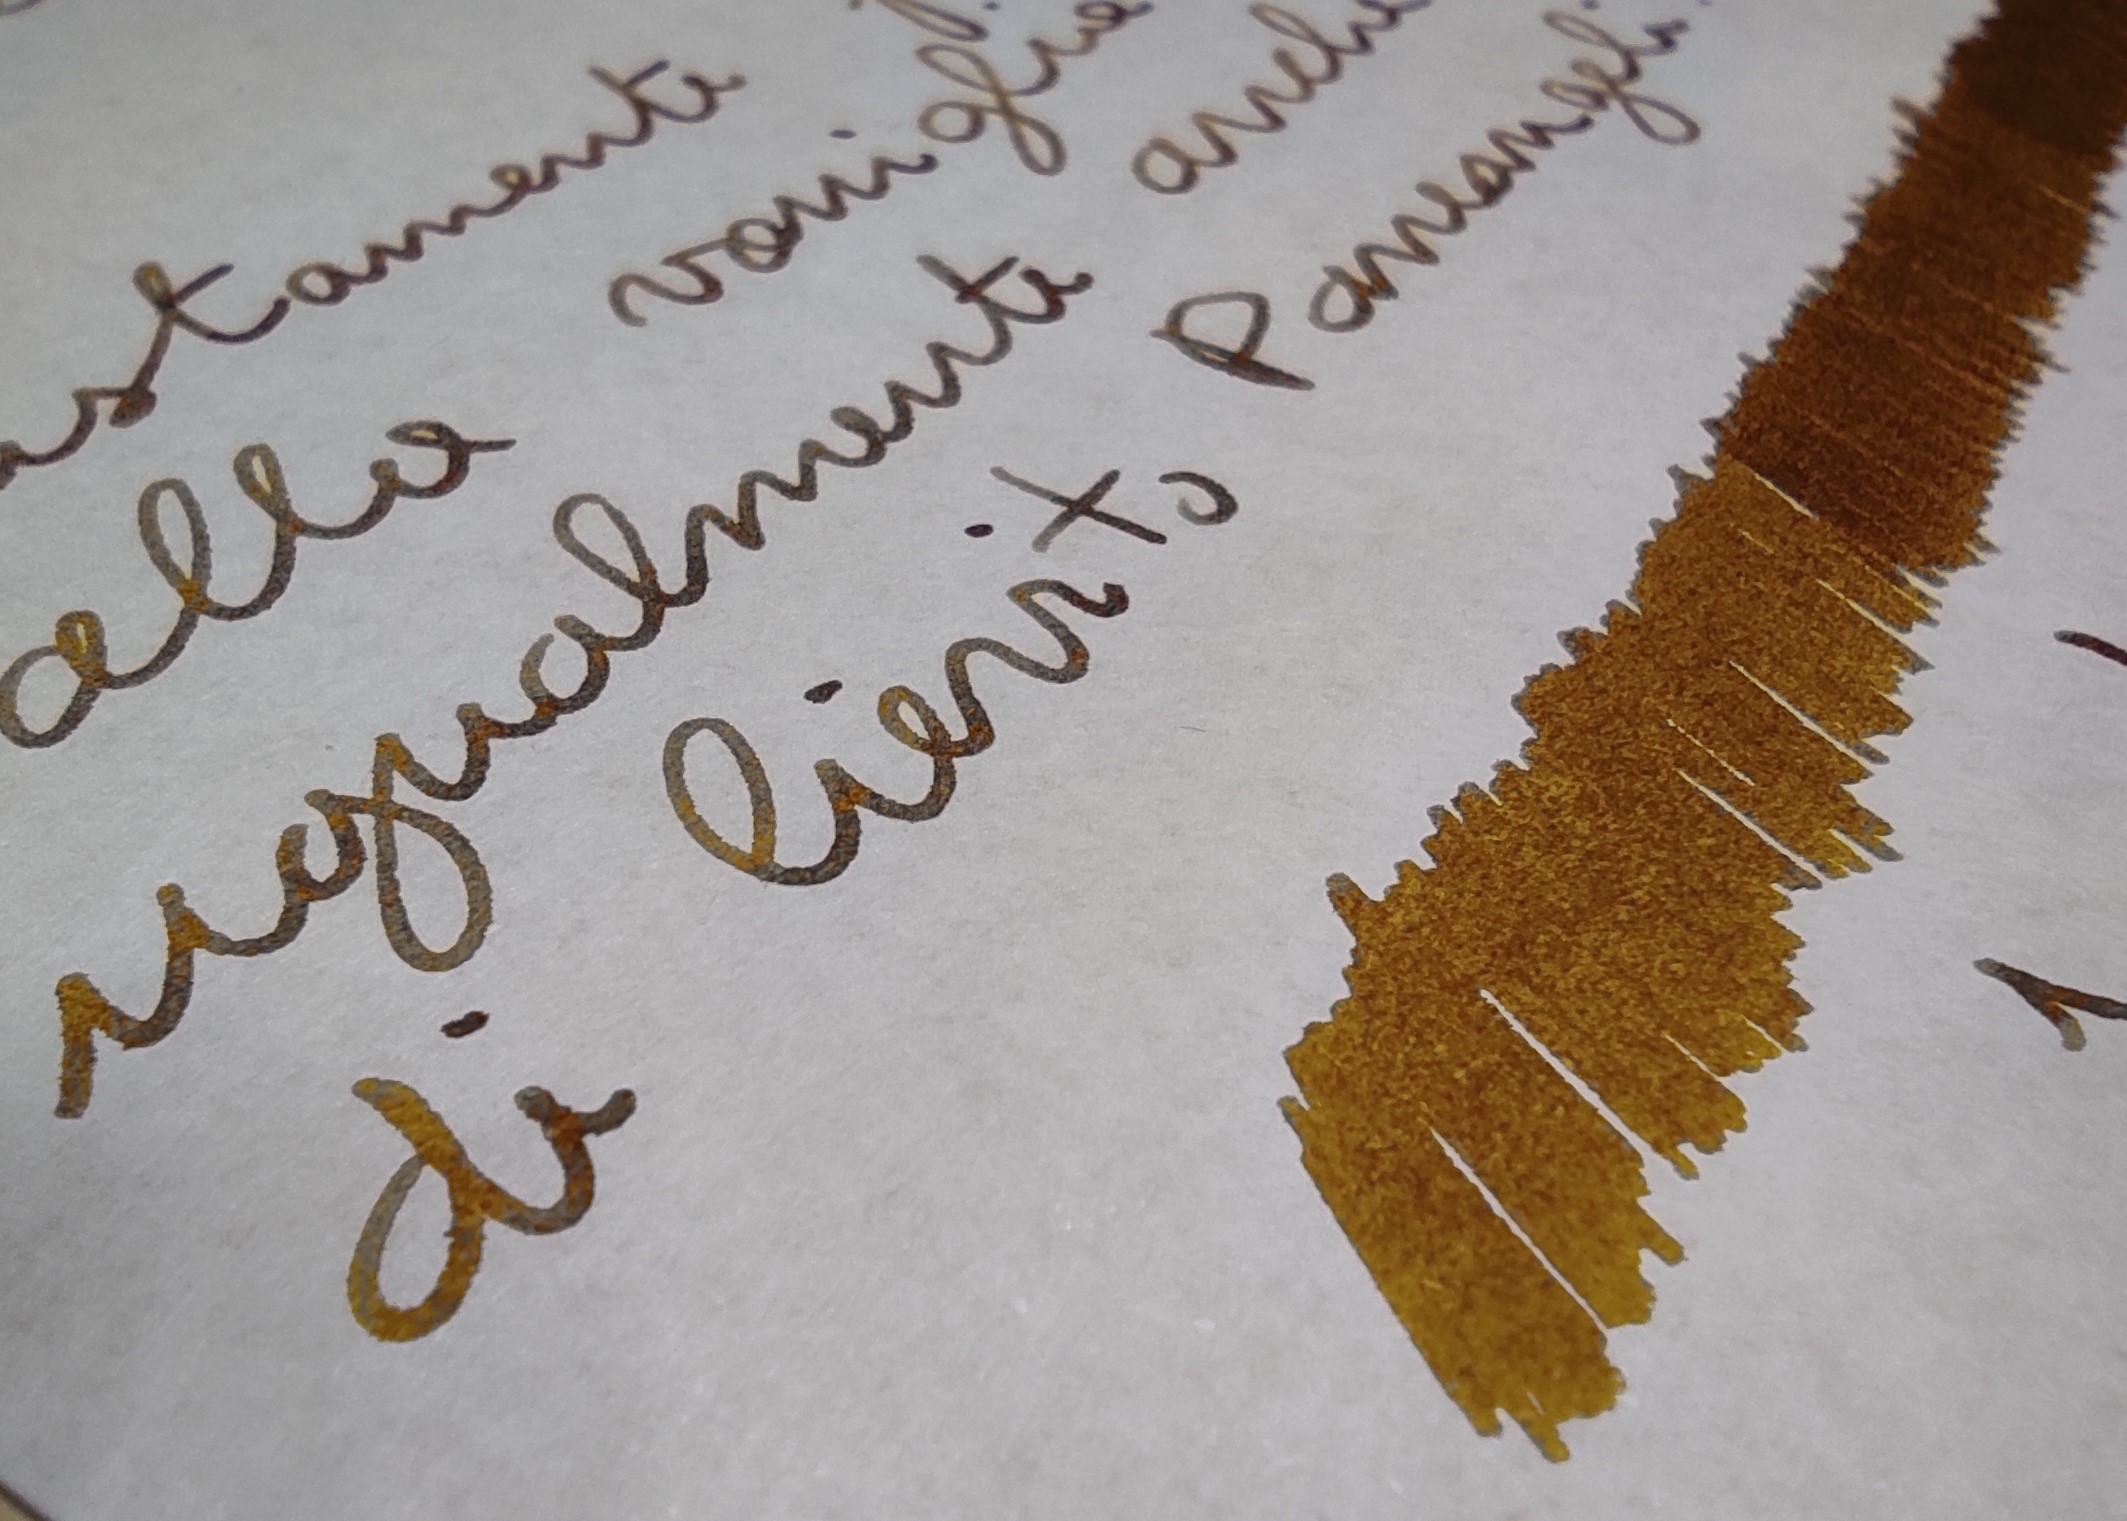 ustamente
alla vaniglia
ugualmente anche
di lievito Paneangeli.